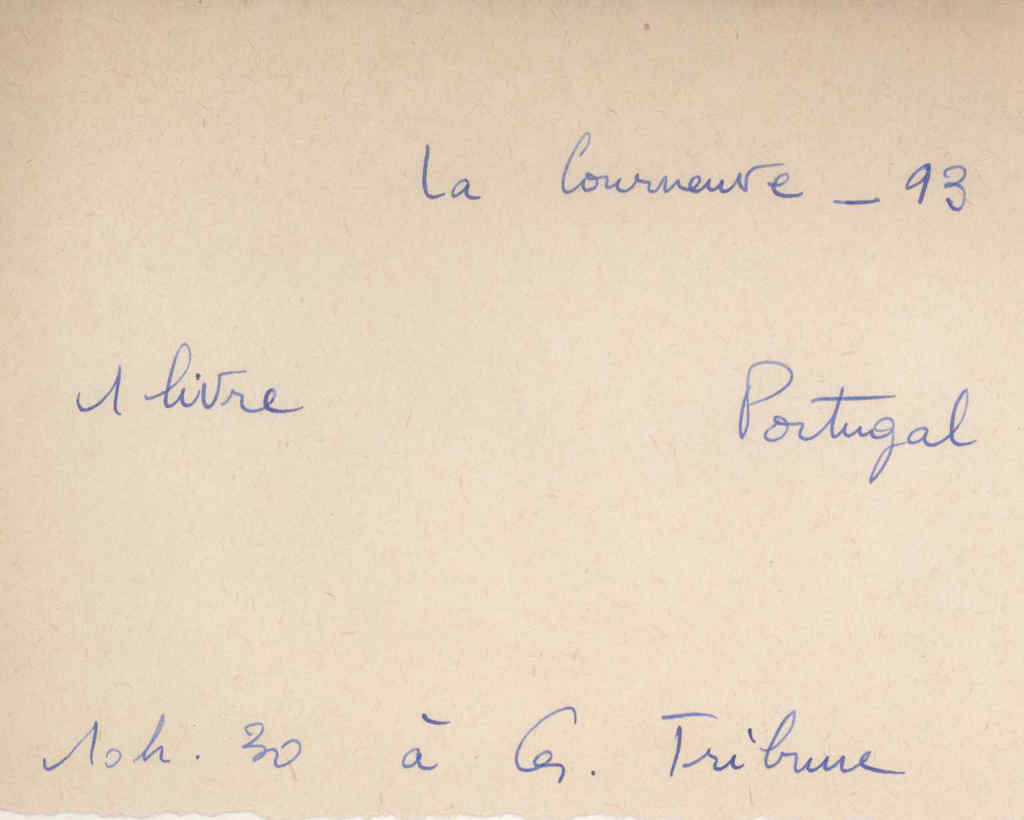 La Courneuve - 93
1 livre Portugal
10h. 30 à la Tribune